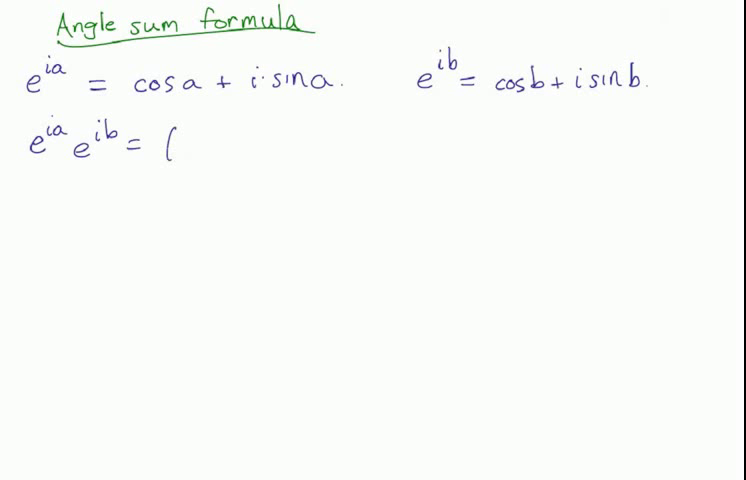 Angle sum formula
e^{ia} = cos a + i·sin a. e^{ib} = cos b + i sin b.
e^{ia} e^{ib} = (